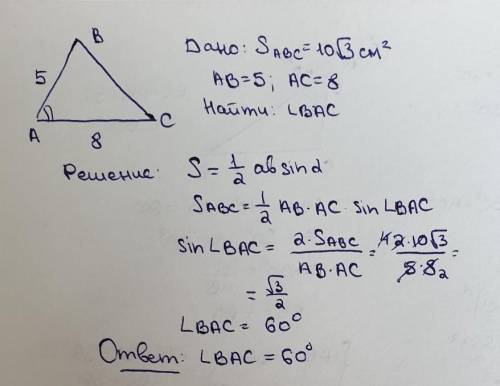 B
5
A
8
C
Дано: S_ABC = 10√3 см²
AB = 5; AC = 8
Найти: ∠BAC
Решение: S = 1/2 ab sin α
S_ABC = 1/2 AB · AC · sin ∠BAC
sin ∠BAC = 2 · S_ABC / AB · AC = 2 · 10√3 / 5 · 8 2 =
= √3 / 2
∠BAC = 60°
Ответ: ∠BAC = 60°